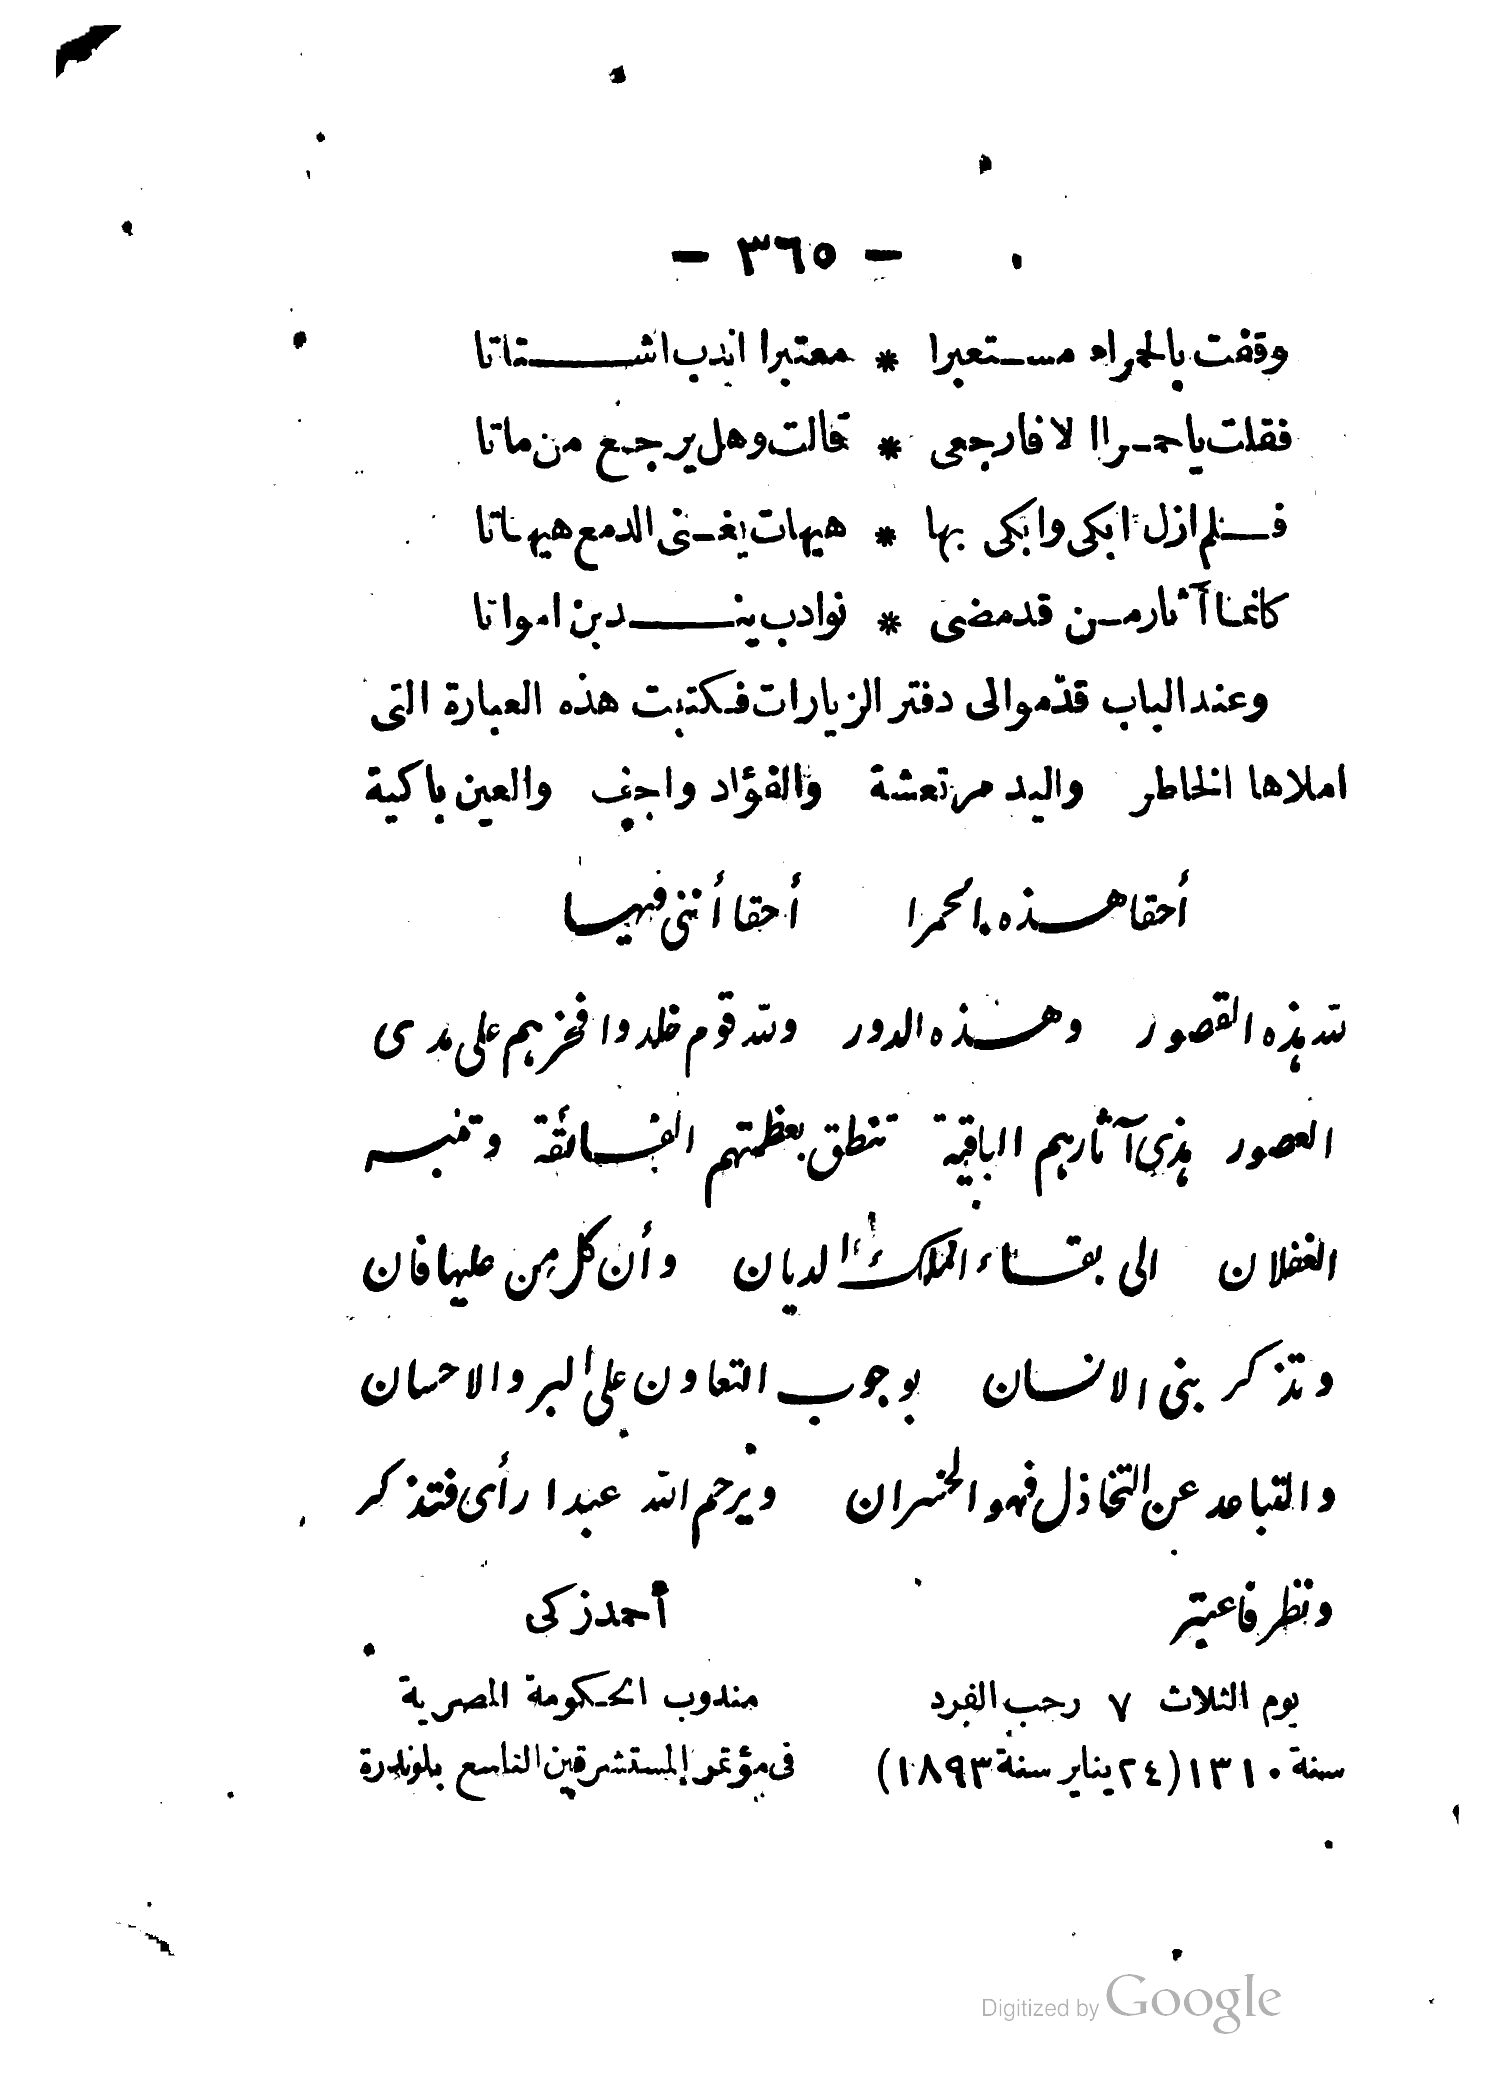 — ٣٦٥ —
وقفت بالحمراء مستعبرا * معتبرا اندب اشتاتا
فقلت ياحمراا لا فارجعى * قالت وهل يرجع من ماتا
فلم ازل ابكى وابكى بها * هيهات يغنى الدمع هيهاتا
كانما آثار من قد مضى * نوادب يندبن امواتا
وعند الباب قدّموالى دفتر الزيارات فكتبت هذه العبارة التى
املاها الخاطر واليد مرتعشة والفؤاد واجف والعين باكية
أحقا هذه الحمرا أحقا أننى فيها
لله هذه القصور وهذه الدور ولله قوم خلدوا فخرهم على مدى
العصور هذى آثارهم الباقية تنطق بعظمتهم الفائقة وتنبه
الغفلان الى بقاء الملك الديان وأن كل من عليها فان
وتذكر بنى الانسان بوجوب التعاون على البر والاحسان
والتباعد عن التخاذل فهو الخسران ويرحم الله عبدا رأى فتذكر
ونظر فاعتبر أحمد زكى
يوم الثلاث ٧ رجب الفرد مندوب الحكومة المصرية
سنة ١٣١٠ (٢٤ يناير سنة ١٨٩٣) فى مؤتمر المستشرقين التاسع بلوندرة
Digitized by Google